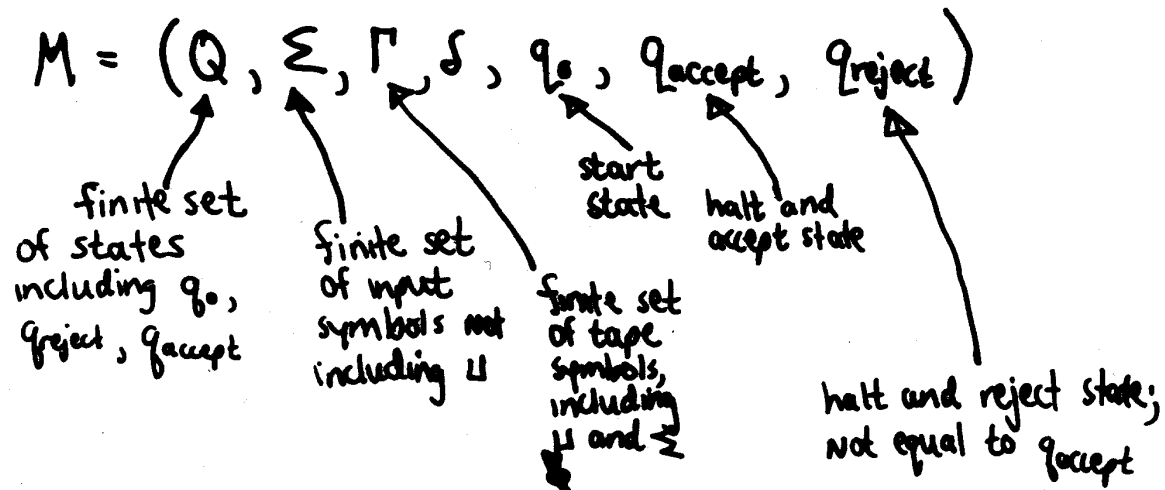 M = (Q, Σ, Γ, δ, q₀, q_accept, q_reject)
finite set
of states
including q₀,
q_reject, q_accept
finite set
of input
symbols not
including ⊔
finite set
of tape
symbols,
including
⊔ and Σ
start
state
halt and
accept state
halt and reject state;
not equal to q_accept